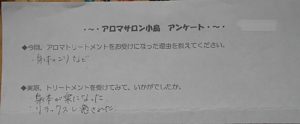 ・～・ アロマサロン小島 アンケート ・～・
◆今回、アロマトリートメントをお受けになった理由を教えてください。
身体のコリなど
◆実際、トリートメントを受けてみて、いかがでしたか。
身体が楽になった。
リラックスし癒された。